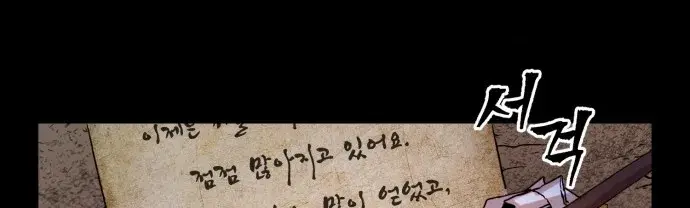 이제는
점점 많아지고 있어요.
많이 얻었고,
서걱